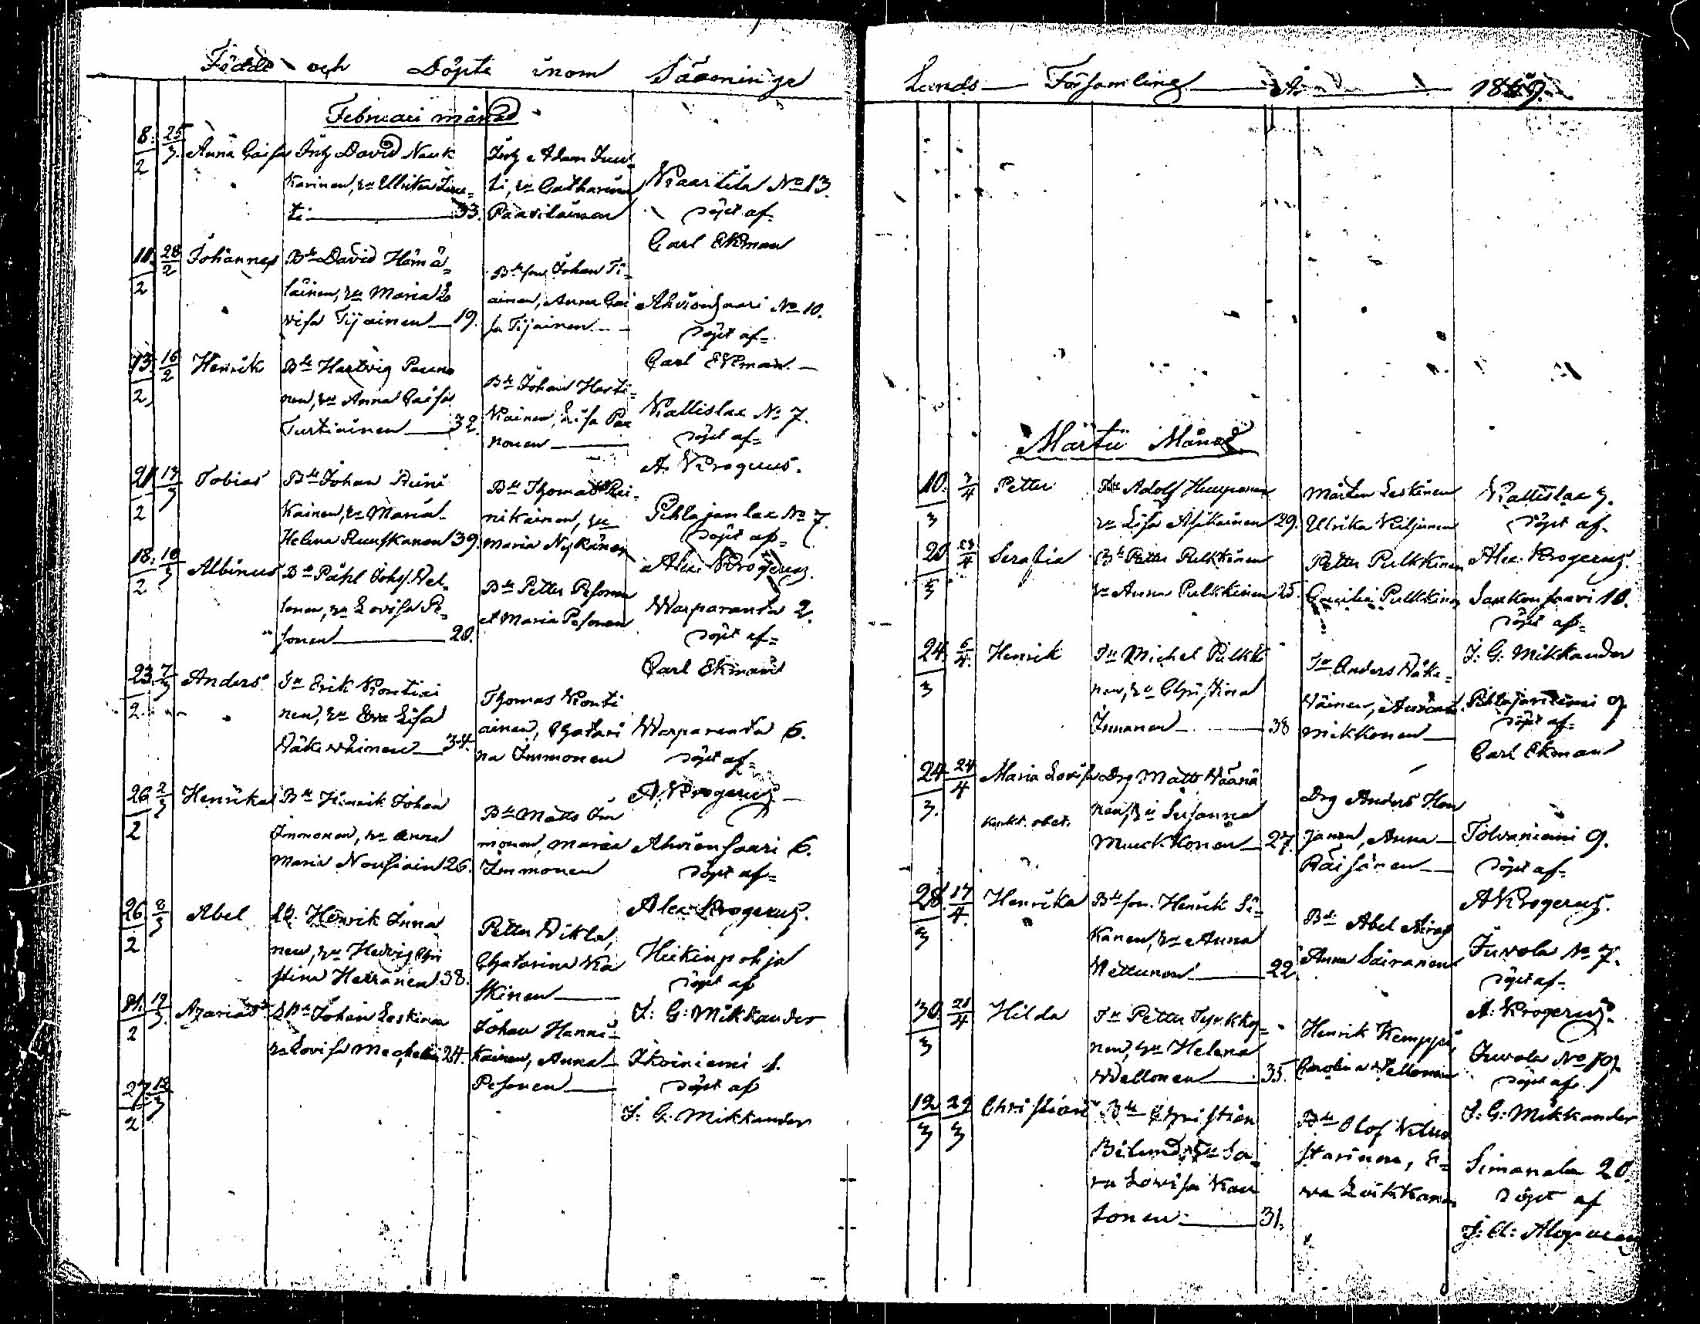 Födde och Döpte inom Sääminge
Februari månad
8/2 25/3 Anna Caisa Inh David Nauk
karinen, hu Ulrika Luu
ti 33.
Inh Adam Luu
ti, hu Catharina
Paavilainen
Kaartila No 13
döpt af
Carl Ekman
11/2 28/2 Johannes Bd David Hämä
läinen, hu Maria Lo
visa Tijainen 19.
Bd son Johan Ti
ainen, Anna Cai
sa Tijainen
Ahvionsaari No 10.
döpt af
Carl Ekman.
13/2 16/2 Henrik Bd Hartvig Paano
nen, hu Anna Caisa
Turtiainen 32.
Bd Johan Harti
kainen, Lisa Pa
nonen
Kallislax No 7.
döpt af
A. Krogerus.
21/2 17/3 Tobias Bd Johan Rini
kainen, hu Maria
Helena Ruuskanen 39.
Bd Thomas
nikainen, hu
Maria Nyskänen
Pihlajanlax No 7.
döpt af
Alex. Krogerus.
18/2 10/3 Albinus Bd Påhl Johs Pel
lonen, hu Lovisa Pe
sonen 20.
Bd Petter Pesonen
et Maria Pesonen
Warparanta 2.
döpt af
Carl Ekman
23/2 7/3 Anders Erik Kontiai
nen, hu Eva Lisa
Näkewäinen 34.
Thomas Konti
ainen, Chatari
na Immonen
Warparanta 6.
döpt af
A. Krogerus
26/2 2/3 Henrika Bd Henrik Johan
Immonen, hu Anna
Maria Nousiain 26.
Bd Matts Im
monen, Maria
Immonen
Ahvionsaari 6.
döpt af
Alex Krogerus.
26/2 8/3 Abel Henrik Inna
nen, hu Hedvig Chri
stina Heiskanen 38.
Petter Wikla,
Chatarina Ka
skinen
Heikinpohja
döpt af
J: G: Mikkander
Azarias Johan Leskinen
hu Lovisa 24.
Johan Hanni
kainen, Anna
Pesonen
Ikoiniemi 1.
döpt af
J: G: Mikkander
27/2 18/3
Lands Församling År 1869.
Martii Månad
10/3 3/4 Petter Adolf Huupponen
hu Lisa Asikainen 29.
Mårten Leskinen
Ulrika Kuljunen
Kallislax 7.
döpt af
Alex. Krogerus.
20/3 23/4 Serafia Bd Petter Pulkkinen
hu Anna Pulkkinen 25.
Petter Pulkkinen
Cecilia Pulkkinen
Saukonsaari 10.
döpt af
J: G: Mikkander
24/3 5/4 Henrik Michel Pulkki
nen, hu Christina
Innanen 38
Anders Näke
wäinen,
Mikkonen
Pihlajaniemi 9
döpt af
Carl Ekman
24/3 24/4 Maria Lovisa Drg Matts Wäänä
nen, hu Susanna
Muukkonen 27.
Drg Anders Hen
janen, Anna
Räisänen
Tolvaniemi 9.
döpt af
A Krogerus.
28/3 17/4 Henrika Bd son. Henrik Si
kanen, hu Anna
Kettunen 22.
Bd Abel
Anna Sairanen
Juvola No 7.
döpt af
A. Krogerus.
30/3 21/4 Hilda Petter Tyrkkö
nen, hu Helena
Wellonen 35.
Henrik Kemppi
Carolina Wellonen
Juvola No 19.
döpt af
J: G: Mikkander
12/3 29/3 Christian Bd Christian
Bilund, hu Sa
ra Lovisa Kau
tonen 31.
Bd Olof
starinen, E
va Luikkanen
Simanala 20.
döpt af
J: A: Alopaeus